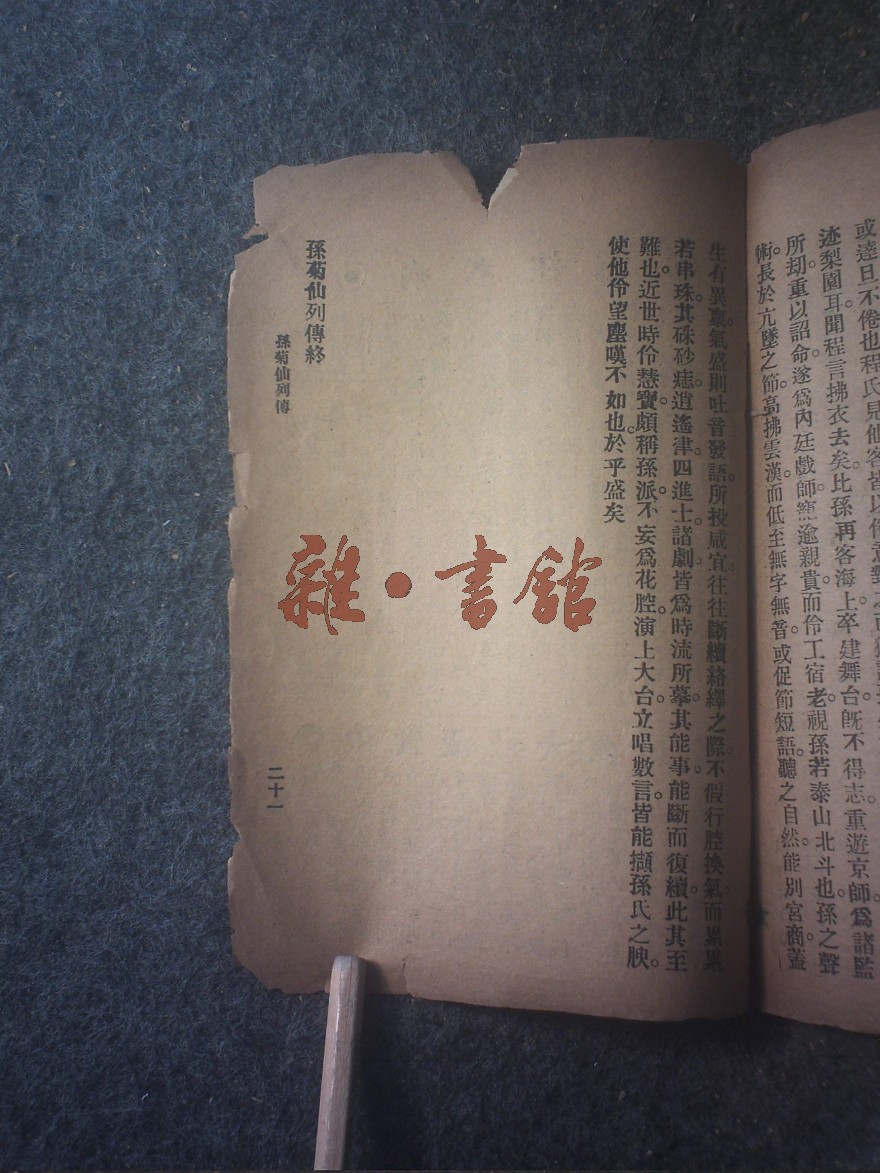 或達旦不倦也程氏見他客皆以
迹梨園耳聞程言拂衣去矣。比孫再客海上。卒建舞台。旣不得志。重遊京師。爲諸監
所刧。重以詔命。遂爲內廷戲師。寵逾親貴。而伶工宿老。視孫若泰山北斗也。孫之聲
術。長於亢墜之節。高拂雲漢。而低至無字無音。或促節短語。聽之自然。能別宮商。蓋
生有異稟。氣盛則吐音發語。所投咸宜。往往斷續絡繹之際。不假行腔換氣。而累累
若串珠。其硃砂痣逍遙津。四進士諸劇。皆爲時流所摹。其能事。能斷而復續。此其至
難也。近世時伶慧寶。頗稱孫派。不妄爲花腔。演上大台。立唱數言。皆能擷孫氏之腴。
使他伶望塵嘆不如也。於乎盛矣
孫菊仙列傳終
孫菊仙列傳
二十一
雜·書館